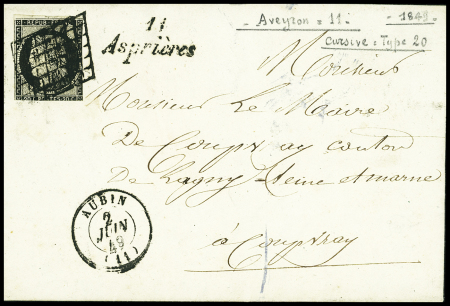 11
Asprières
Aveyron = 11 -
- 1849 -
Cursive = Type 20
Monsieur
Monsieur Le Maire
De Coupvray canton
De Lagny Seine et marne
à Coupvray
AUBIN
2
JUIN
49
(11)